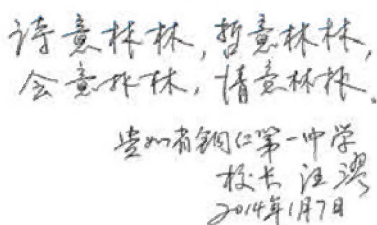 诗意林林，哲意林林，
会意林林，情意林林。
贵州省铜仁第一中学
校长 汪漻
2014年1月7日